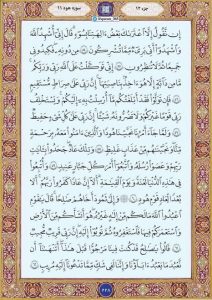 جزء ۱۲
سوره هود ۱۱
إِن نَّقُولُ إِلَّا اعْتَرَاكَ بَعْضُ ءَالِهَتِنَا بِسُوءٍ قَالَ إِنِّي أُشْهِدُ اللَّهَ
وَاشْهَدُوا أَنِّي بَرِيءٌ مِّمَّا تُشْرِكُونَ ۵۴ مِن دُونِهِ فَكِيدُونِي
جَمِيعًا ثُمَّ لَا تُنظِرُونِ ۵۵ إِنِّي تَوَكَّلْتُ عَلَى اللَّهِ رَبِّي وَرَبِّكُم
مَّا مِن دَابَّةٍ إِلَّا هُوَ ءَاخِذٌ بِنَاصِيَتِهَا إِنَّ رَبِّي عَلَى صِرَاطٍ مُّسْتَقِيمٍ
۵۶ فَإِن تَوَلَّوْا فَقَدْ أَبْلَغْتُكُم مَّا أُرْسِلْتُ بِهِ إِلَيْكُمْ وَيَسْتَخْلِفُ
رَبِّي قَوْمًا غَيْرَكُمْ وَلَا تَضُرُّونَهُ شَيْئًا إِنَّ رَبِّي عَلَى كُلِّ شَيْءٍ حَفِيظٌ
۵۷ وَلَمَّا جَاءَ أَمْرُنَا نَجَّيْنَا هُودًا وَالَّذِينَ ءَامَنُوا مَعَهُ بِرَحْمَةٍ
مِّنَّا وَنَجَّيْنَاهُم مِّنْ عَذَابٍ غَلِيظٍ ۵۸ وَتِلْكَ عَادٌ جَحَدُوا بِآيَاتِ
رَبِّهِمْ وَعَصَوْا رُسُلَهُ وَاتَّبَعُوا أَمْرَ كُلِّ جَبَّارٍ عَنِيدٍ ۵۹ وَأُتْبِعُوا
فِي هَذِهِ الدُّنْيَا لَعْنَةً وَيَوْمَ الْقِيَامَةِ أَلَا إِنَّ عَادًا كَفَرُوا رَبَّهُمْ أَلَا
بُعْدًا لِّعَادٍ قَوْمِ هُودٍ ۶۰ وَإِلَى ثَمُودَ أَخَاهُمْ صَالِحًا قَالَ يَا قَوْمِ
اعْبُدُوا اللَّهَ مَا لَكُم مِّنْ إِلَهٍ غَيْرُهُ هُوَ أَنشَأَكُم مِّنَ الْأَرْضِ
وَاسْتَعْمَرَكُمْ فِيهَا فَاسْتَغْفِرُوهُ ثُمَّ تُوبُوا إِلَيْهِ إِنَّ رَبِّي قَرِيبٌ مُّجِيبٌ
۶۱ قَالُوا يَا صَالِحُ قَدْ كُنتَ فِينَا مَرْجُوًّا قَبْلَ هَذَا أَتَنْهَانَا أَن
نَّعْبُدَ مَا يَعْبُدُ ءَابَاؤُنَا وَإِنَّنَا لَفِي شَكٍّ مِّمَّا تَدْعُونَا إِلَيْهِ مُرِيبٍ ۶۲
۲۲۸